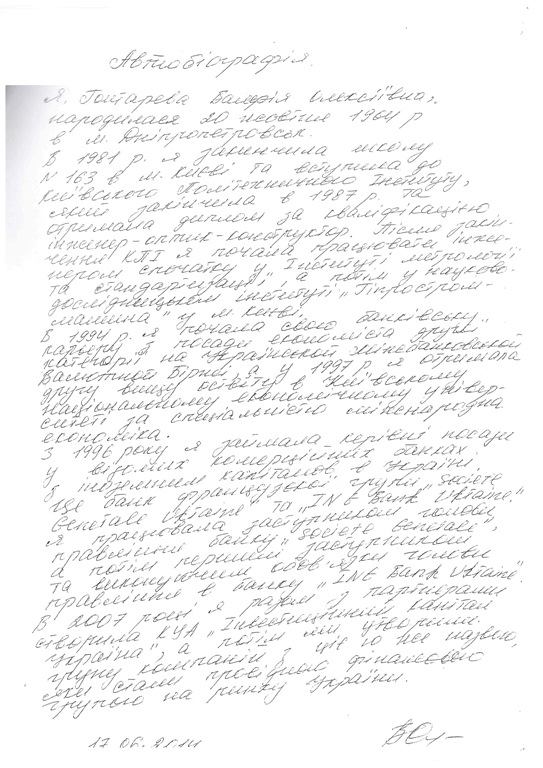 Автобіографія.
Я, Гонтарева Валерія Олексіївна,
народилася 20 жовтня 1964 р
в м. Дніпропетровськ.
В 1981 р. я закінчила школу
N 163 в м. Києві та вступила до
Київського Політехнічного Інституту,
який закінчила в 1987 р. та
отримала диплом за кваліфікацією
інженер-оптик-конструктор. Після закін-
чення КПІ я почала працювати інже-
нером спочатку у „Інституті метрології
та стандартизації", а потім у науково-
дослідницьком інституті „Гіпростром-
машина" у м. Києві.
В 1994 р. я почала свою банківську
кар'єру з посади економіста другої
категорії на Українській Міжбанківській
Валютной Біржі, а у 1997 р. я отримала
другу вищу освіту в Київському
національному економічному універ-
ситеті за спеціальністю міжнародна
економіка.
З 1996 року я займала керівні посади
у відомих комерційних банках
з іноземним капіталом в Україні.
Це банк французької групи „Societe
Generale Ukraine" та „ING Bank Ukraine".
Я працювала заступником голови
правління банку „Societe Generale",
а потім першим заступником
та виконуючим обов'язки голови
правління в банку „ING Bank Ukraine".
В 2007 році я разом з партнерами
створила КУА „Інвестиційний капітал
Україна", а потім ми утворили
групу компаній з цією же назвою,
яка стала провідною фінансовою
групою на ринку України.
17 06. 2014